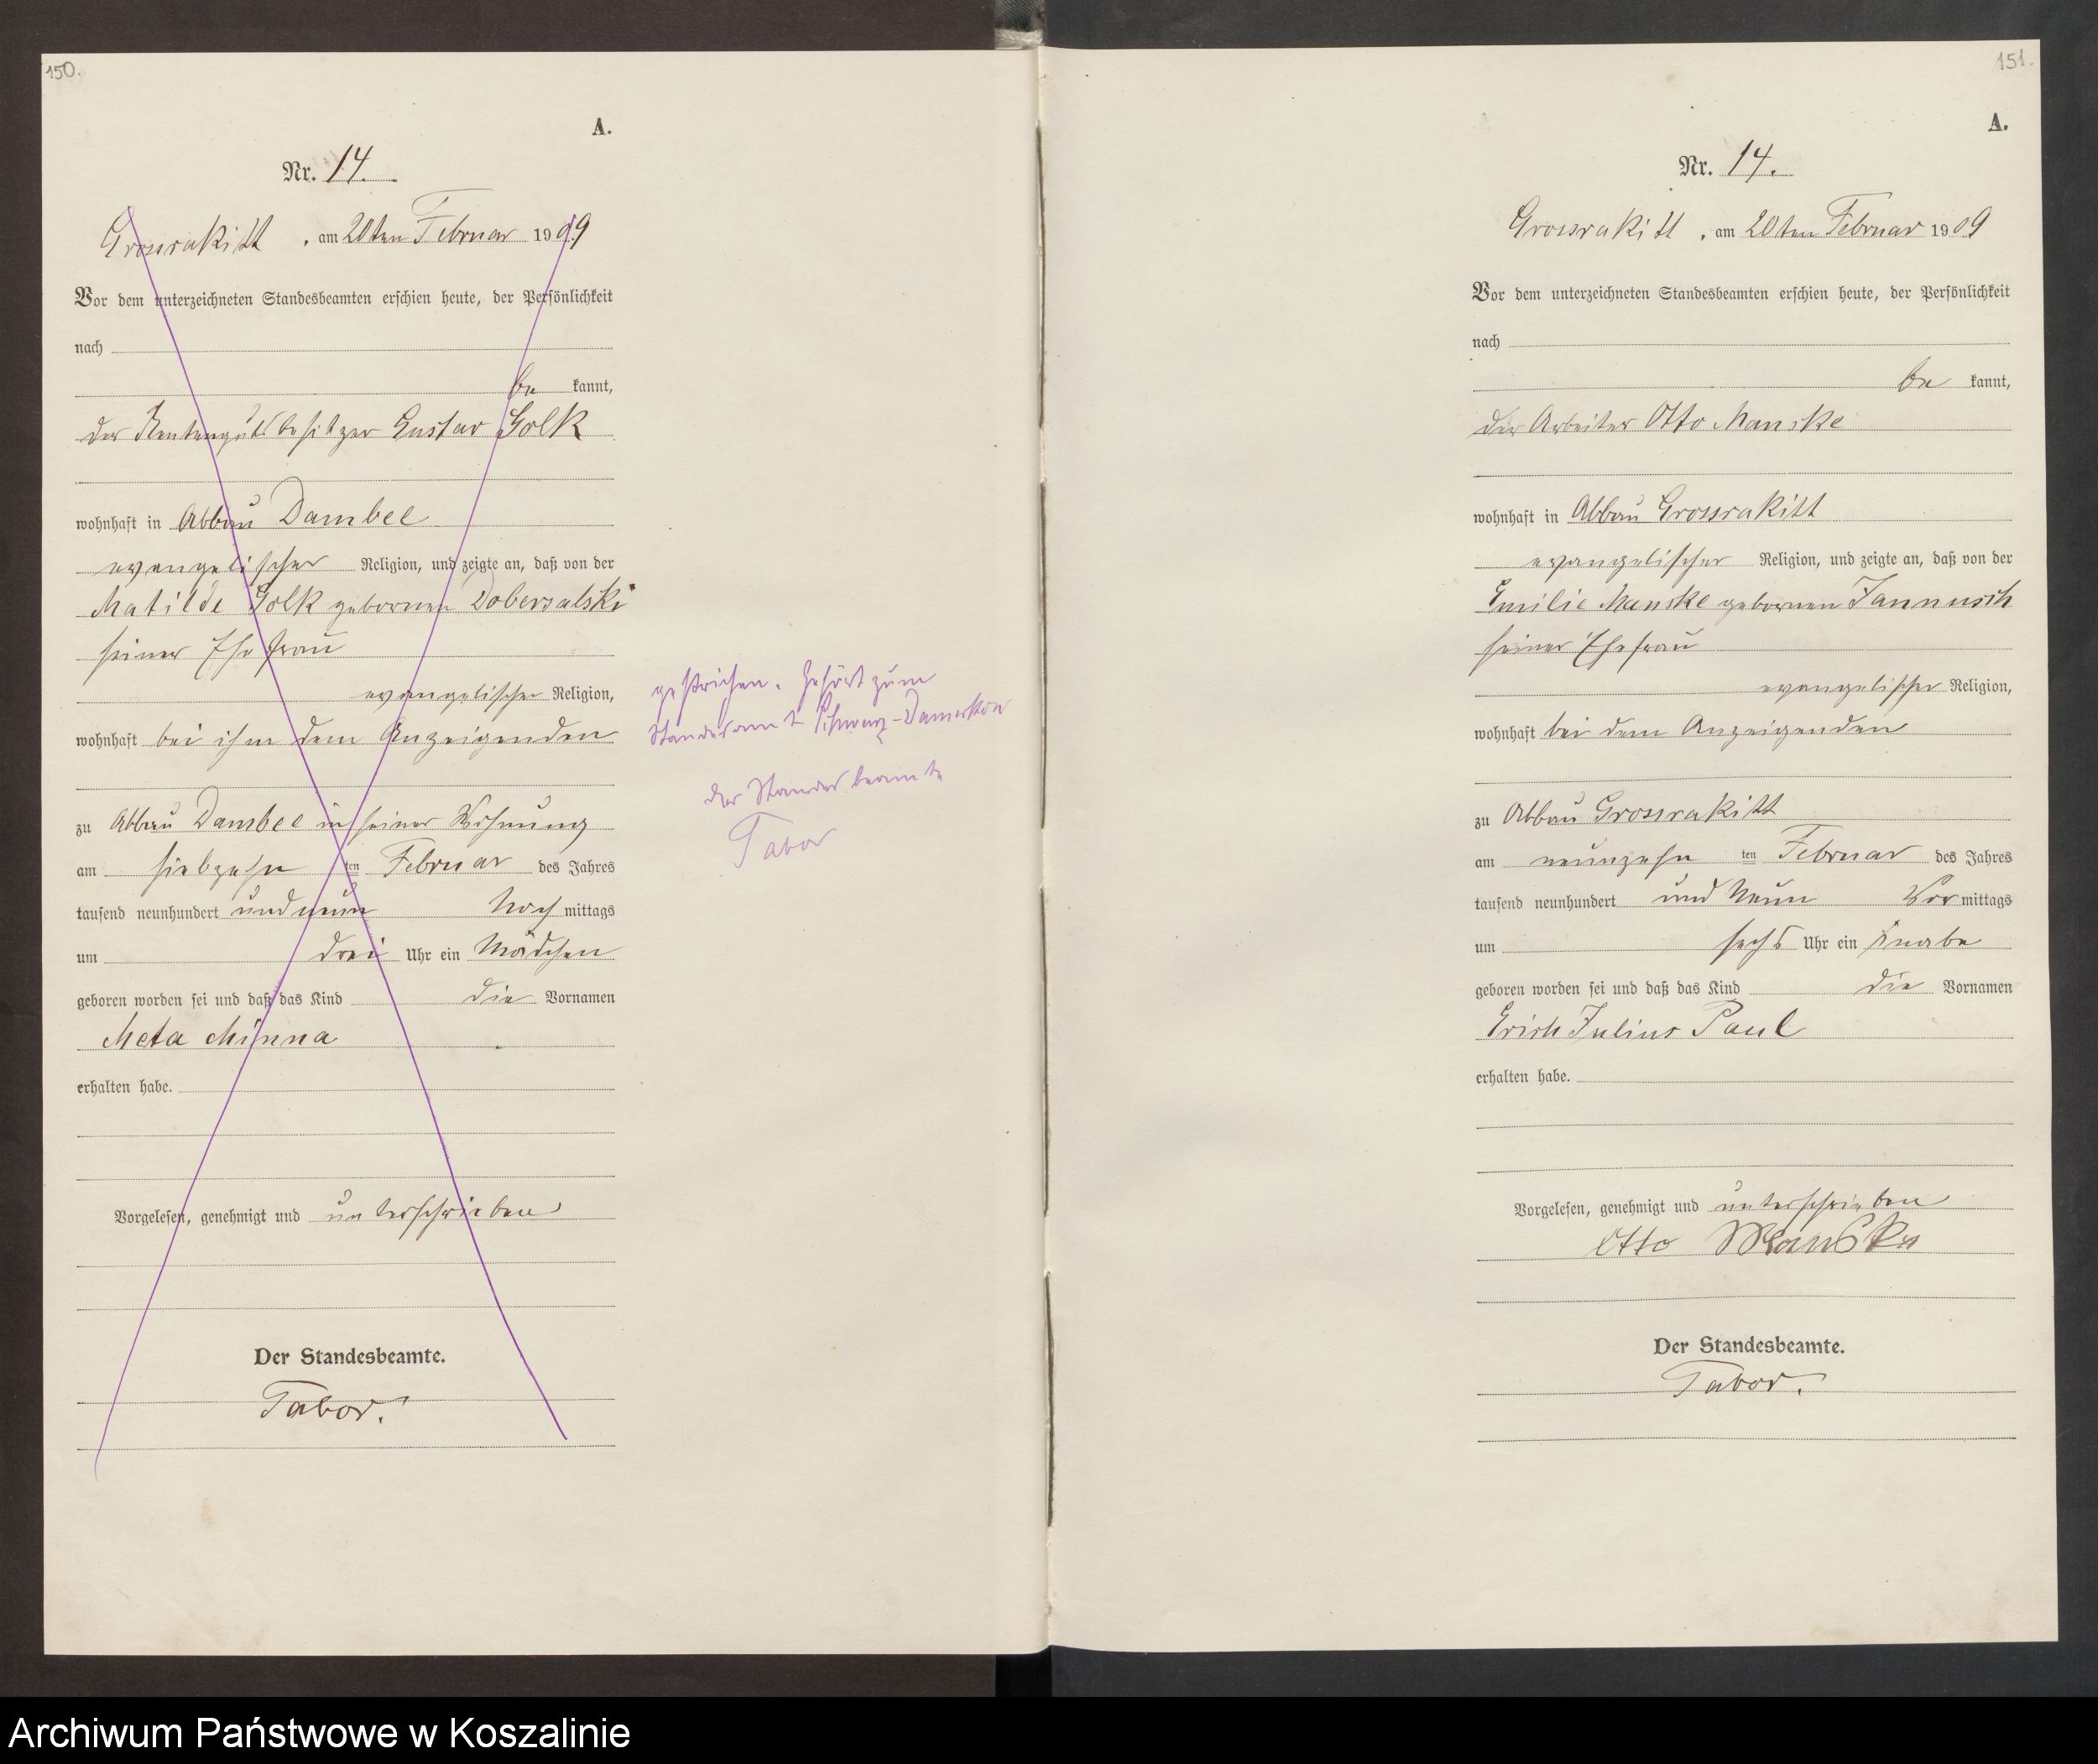 150.
A.
Nr. 14.
Grossrakitt, am 20ten Februar 1909
Vor dem unterzeichneten Standesbeamten erschien heute, der Persönlichkeit
nach
be kannt,
der Rentengutsbesitzer Gustav Golk
wohnhaft in Abbau Dambee
evangelischer Religion, und zeigte an, daß von der
Matilde Golk gebornen Dobersalski
seiner Ehefrau
evangelischer Religion,
wohnhaft bei ihm dem Anzeigenden
zu Abbau Dambee in seiner Wohnung
am siebzehn ten Februar des Jahres
tausend neunhundert und neun Nach mittags
um drei Uhr ein Mädchen
geboren worden sei und daß das Kind die Vornamen
Meta Minna
erhalten habe.
Vorgelesen, genehmigt und unterschrieben
Der Standesbeamte.
Tabor.
gestrichen. Gehört zum
Standesamt Schwarz-Damerkow
Der Standesbeamte
Tabor
151.
A.
Nr. 14.
Grossrakitt, am 20ten Februar 1909
Vor dem unterzeichneten Standesbeamten erschien heute, der Persönlichkeit
nach
be kannt,
der Arbeiter Otto Manske
wohnhaft in Abbau Grossrakitt
evangelischer Religion, und zeigte an, daß von der
Emilie Manske gebornen Jannusch
seiner Ehefrau
evangelischer Religion,
wohnhaft bei dem Anzeigenden
zu Abbau Grossrakitt
am neunzehn ten Februar des Jahres
tausend neunhundert und Neun Vor mittags
um sechs Uhr ein Knabe
geboren worden sei und daß das Kind die Vornamen
Erich Julius Paul
erhalten habe.
Vorgelesen, genehmigt und unterschrieben
Otto Manske
Der Standesbeamte.
Tabor.
Archiwum Państwowe w Koszalinie